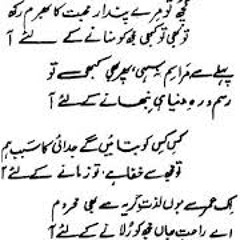 کچھ تو مرے پندار محبت کا بھرم رکھ
تو بھی تو کبھی مجھ کو منانے کے لئے آ
پہلے سے مراسم نہ سہی، پھر بھی کبھی تو
رسم و رہ دنیا ہی نبھانے کے لئے آ
کس کس کو بتائیں گے جدائی کا سبب ہم
تو مجھ سے خفا ہے، تو زمانے کے لئے آ
اک عمر سے ہوں لذت گریہ سے بھی محروم
اے راحت جاں مجھ کو رلانے کے لئے آ